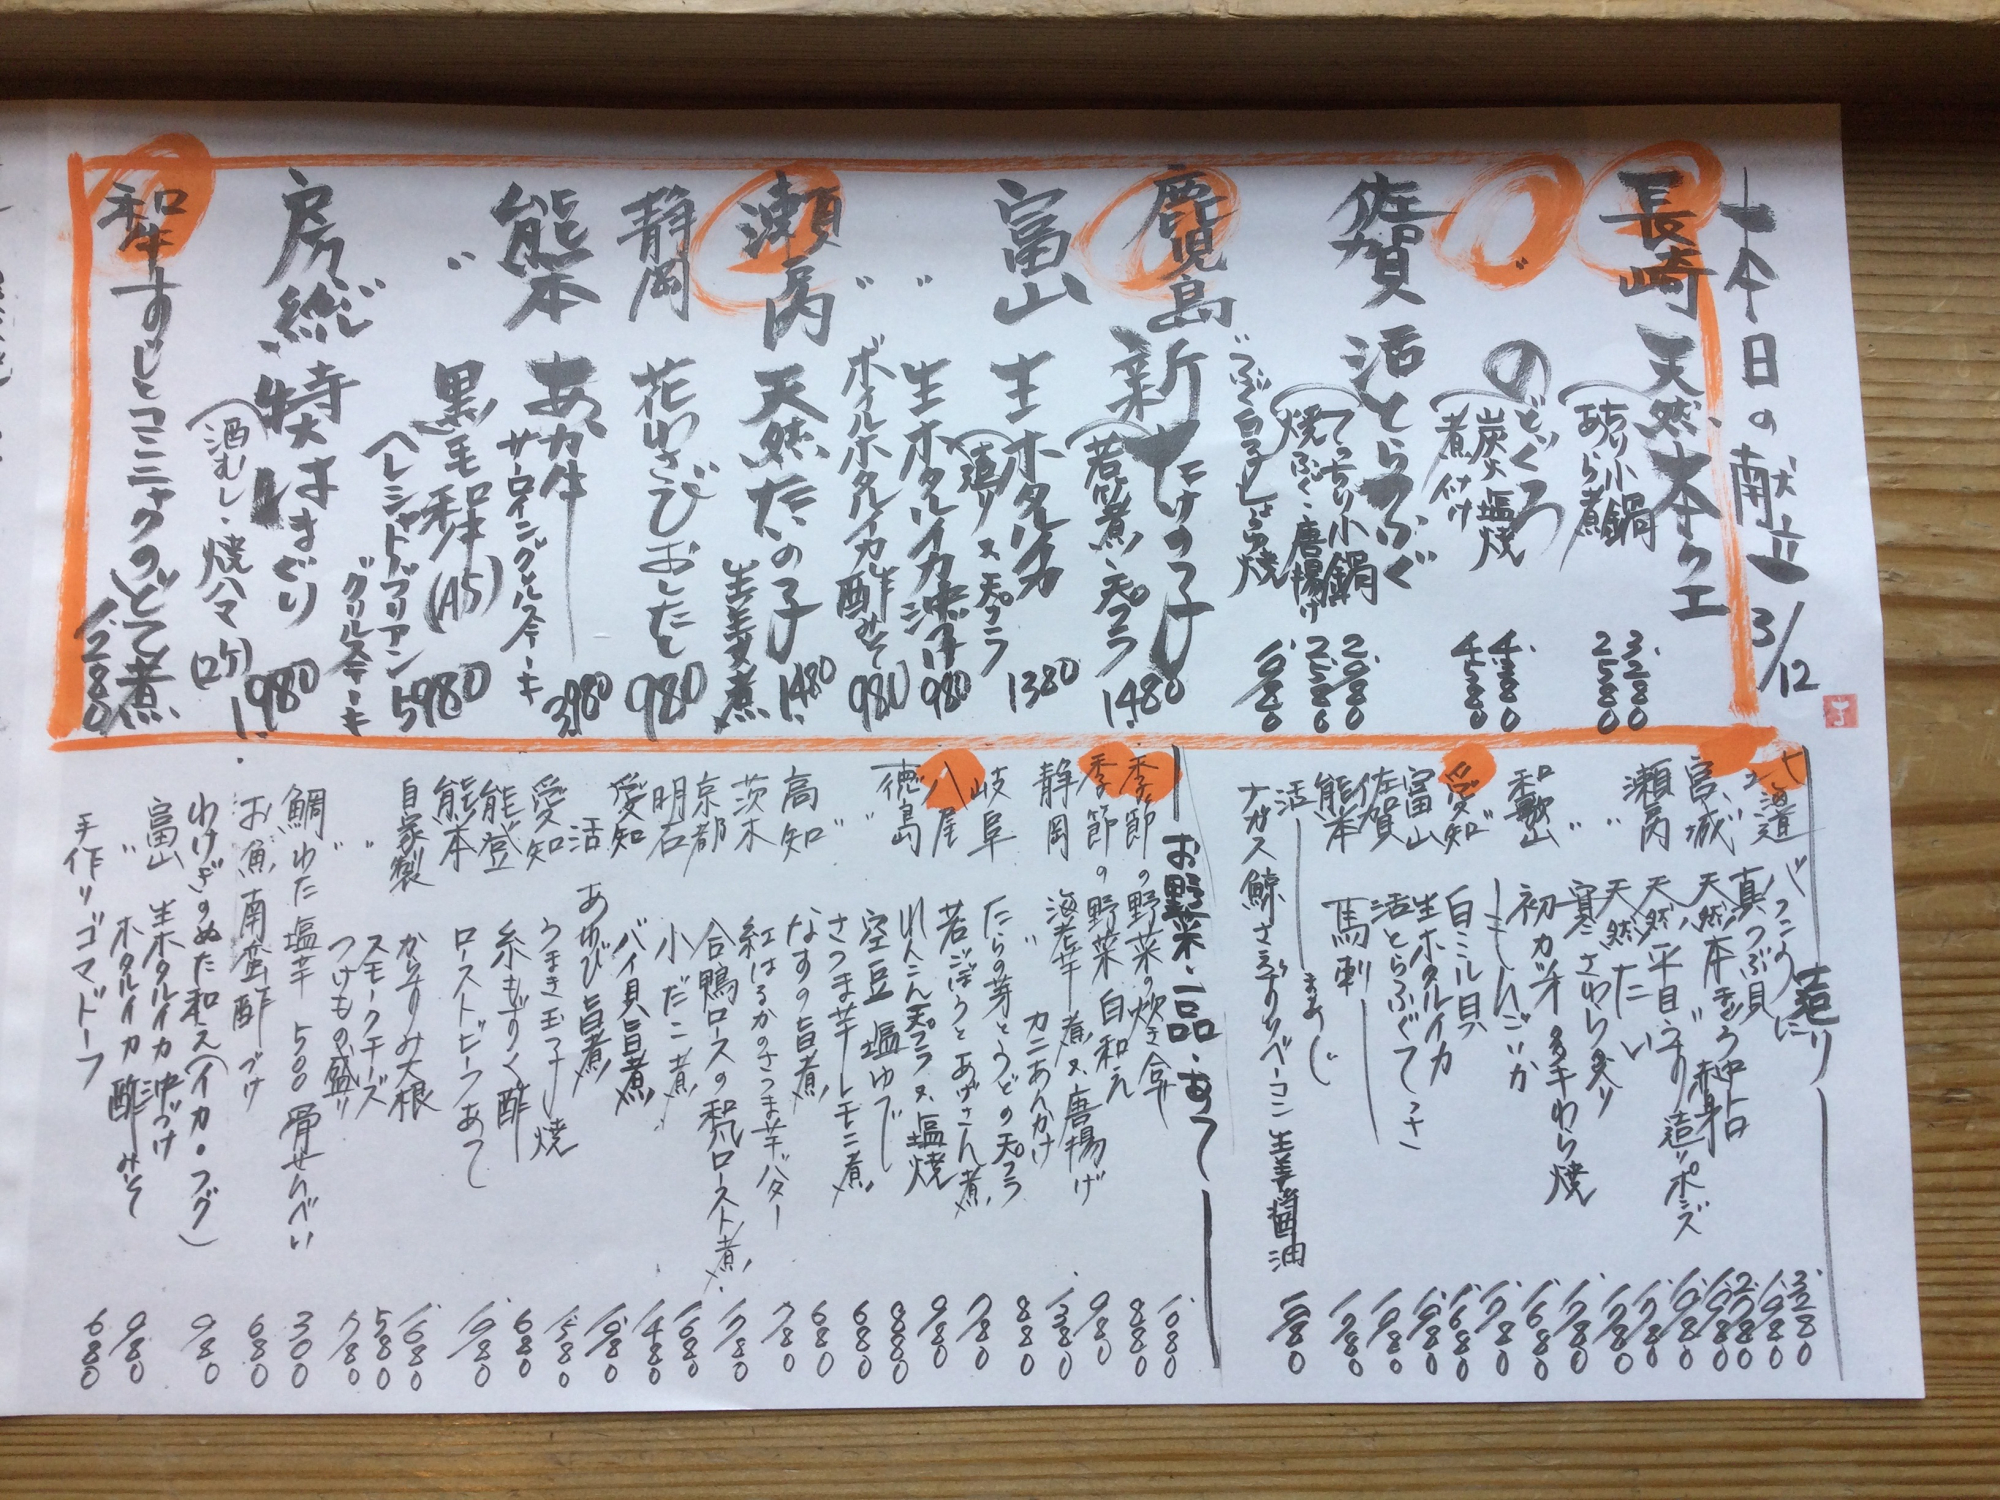 本日の献立 3/12
長崎 天然本クエ
あら小鍋 3.280
あら煮 2580
〃 のどぐろ
炭火塩焼 4.380
煮付け 4580
佐賀 活とらふぐ
てっちり小鍋 2.980
焼ふぐ・唐揚げ 2580
ふぐ白子しょうゆ焼 1.980
鹿児島 新たけの子
若竹煮・天プラ 1480
富山 生ホタルイカ
造り又天プラ 1380
〃 生ホタルイカ沖漬け 980
〃 ボイルホタルイカ酢みそ 980
瀬戸内 天然たいの子
生姜煮 1480
静岡 花わさびおしたし 980
熊本 あか牛
サーロイングリルステーキ 3980
〃 黒毛和牛(A5) 5980
(シャトーブリアン
グリルステーキ
房総 特大はまぐり
(酒むし・焼ハマ (2ケ) 1.980
和牛すじとコンニャクのどて煮 1280
造り
北海道 バフンうに 3.280
真つぶ貝 1.980
宮城 天然本まぐろ 中トロ 2.780
赤身 1.980
瀬戸内 天然平目うすり造りポンズ 1.980
〃 天然たい 1.780
〃 寒さわら炙り 1780
和歌山 初カツオのわら焼 1.780
〃 しんこいか 1.680
愛知 白ミル貝 1.780
富山 生ホタルイカ 1.680
佐賀 活とらふぐてっさ 1.980
熊本 馬刺 1.980
活 まあじ 1.780
ナガス鯨さえずりベーコン 生姜醤油 1.980
お野菜・一品・あて
季節の野菜の炊き合せ 1.080
季節の野菜 白和え 880
静岡 海老芋 煮又唐揚げ 980
〃 カニあんかけ 1.380
岐阜 たらの芽とうどの天プラ 880
八尾 若ごぼうとあげさん煮 780
徳島 れんこん天プラ又塩焼 980
〃 空豆 塩ゆで 880
〃 さつま芋レモン煮 680
高知 なすの旨煮 680
茨木 紅はるかのさつま芋バター 780
京都 合鴨ロースの和風ロースト煮 1.780
明石 小だこ煮 1.080
愛知 バイ貝旨煮 1.480
活 あわび旨煮 1.980
愛知 うまき玉子焼 1.580
能登 糸もずく酢 680
熊本 ローストビーフあて 1.980
自家製 からすみ大根 1.080
〃 スモークチーズ 580
〃 つけもの盛り 780
鯛わた塩辛 500 骨せんべい 300
お魚南蛮酢づけ 680
わけぎのぬた和え(イカ・フグ) 980
富山 生ホタルイカ沖づけ 980
〃 ホタルイカ酢みそ
手作りゴマドーフ 680